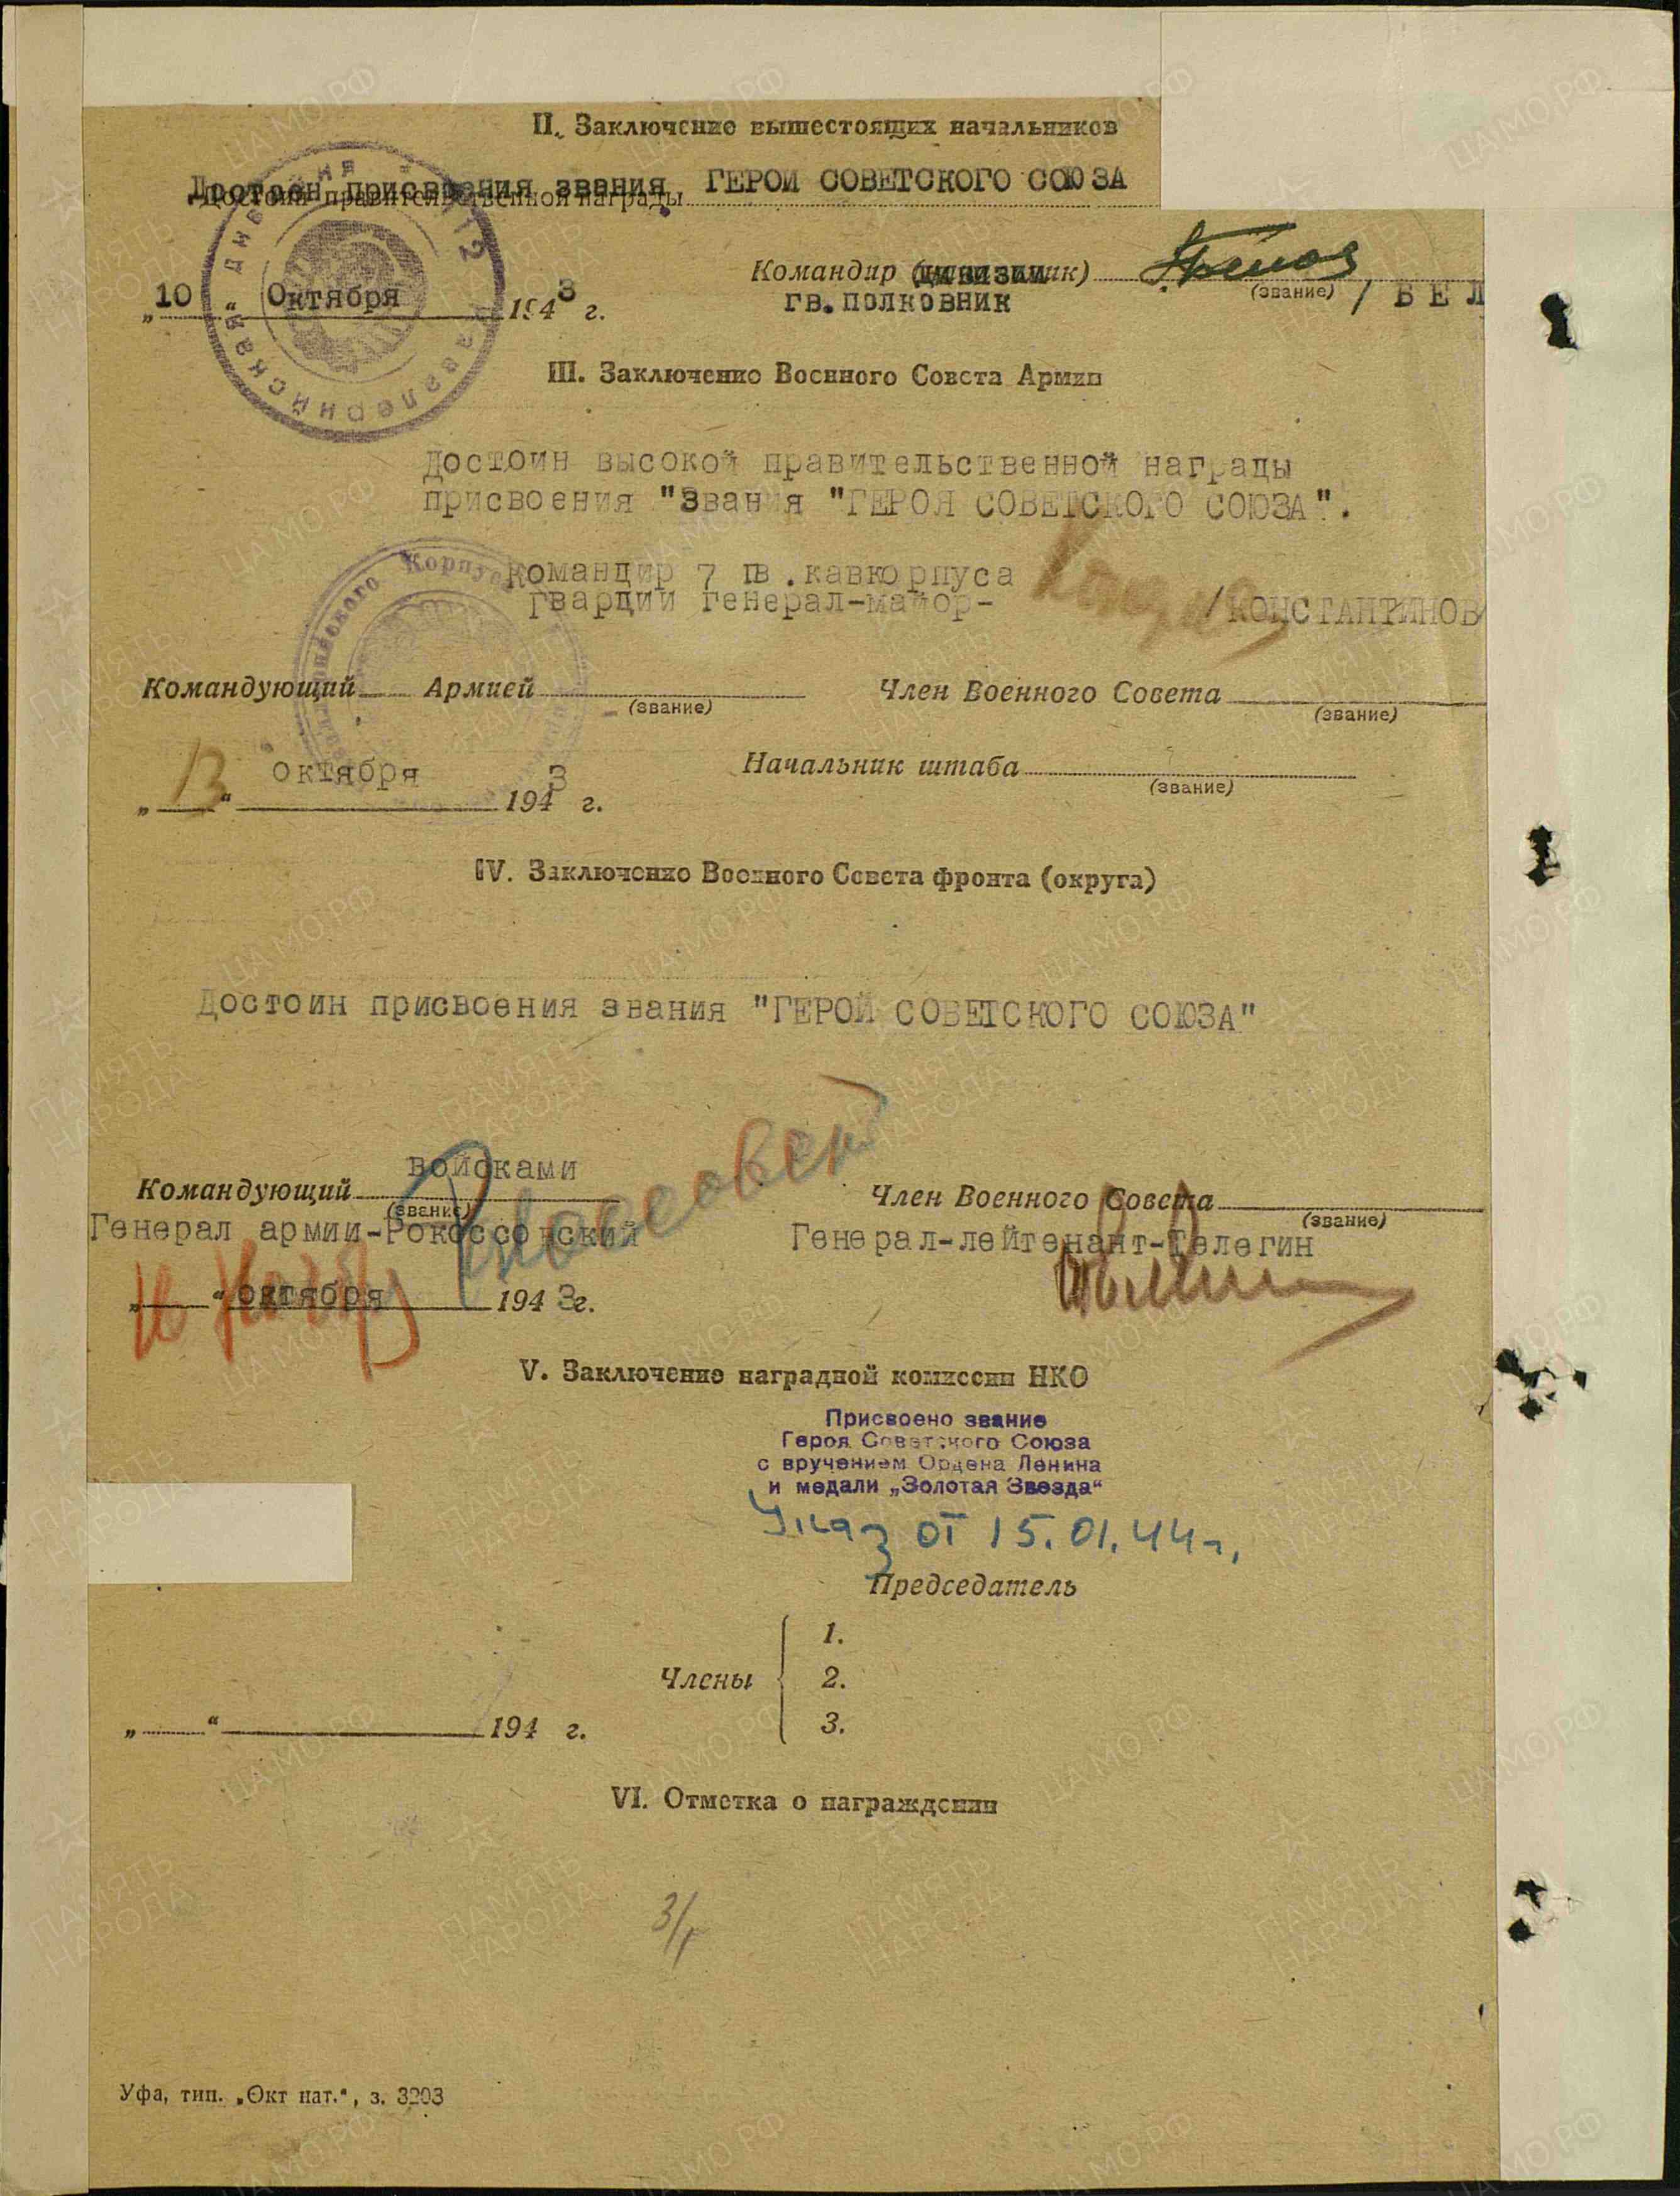 II. Заключение вышестоящих начальников
Достоен присвоения звания ГЕРОИ СОВЕТСКОГО СОЮЗА
Достоин правительственной награды
Командир (дивизии ик)
(звание)
/ Б Е Л
„ 10 " Октября 1943 г.
гв. полковник
III. Заключение Военного Совета Армии
Достоин высокой правительственной награды
присвоения "Звания "ГЕРОЯ СОВЕТСКОГО СОЮЗА".
Командир 7 гв. кавкорпуса
гвардии генерал-майор-
/КОНСТАНТИНОВ/
Командующий Армией
(звание)
Член Военного Совета
(звание)
„ 13 " октября 1943 г.
Начальник штаба
(звание)
IV. Заключение Военного Совета фронта (округа)
Достоин присвоения звания "ГЕРОЙ СОВЕТСКОГО СОЮЗА"
Командующий войсками
(звание)
Генерал армии-Рокоссовский
Член Военного Совета
(звание)
Генерал-лейтенант-Телегин
„ " октября 1943 г.
V. Заключение наградной комиссии НКО
Присвоено звание
Героя Советского Союза
с вручением Ордена Ленина
и медали „Золотая Звезда"
Указ от 15.01.44г.
Председатель
Члены
1.
2.
3.
„ " 194 г.
VI. Отметка о награждении
Уфа, тип. „Окт нат.", з. 3203
ПАМЯТЬ НАРОДА
ЦАМО.РФ